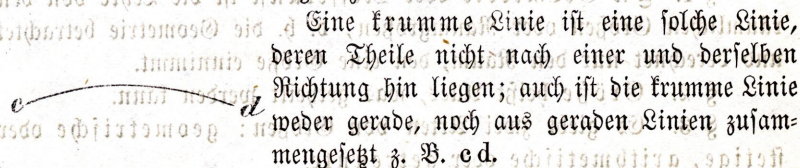 Eine krumme Linie ist eine solche Linie,
deren Theile nicht nach einer und derselben
Richtung hin liegen; auch ist die krumme Linie
weder gerade, noch aus geraden Linien zusam-
mengesetzt z. B. c d.
c d